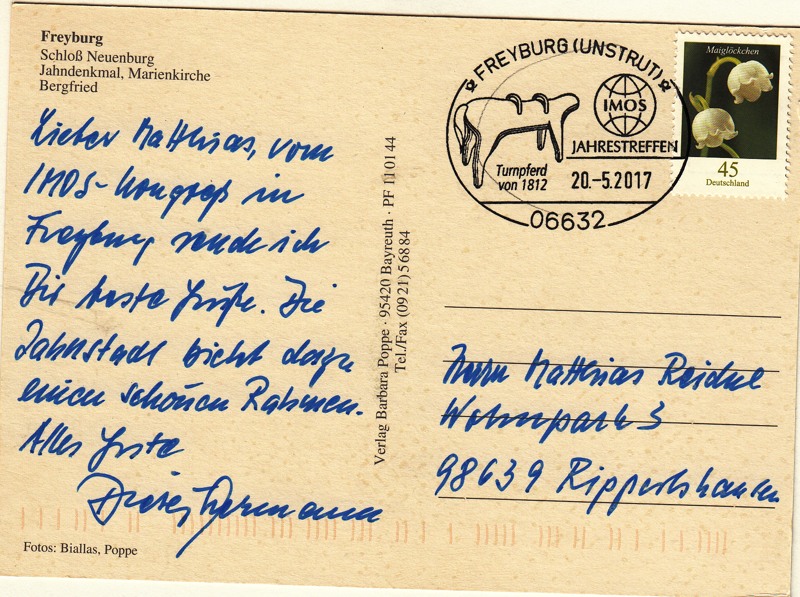 Freyburg
Schloß Neuenburg
Jahndenkmal, Marienkirche
Bergfried
Lieber Matthias, vom
IMOS-Kongreß in
Freyburg sende ich
Dir beste Grüße. Die
Jahnstadt bietet dazu
einen schönen Rahmen.
Alles Gute
Dieter Germann
Fotos: Biallas, Poppe
Verlag Barbara Poppe · 95420 Bayreuth · PF 11 01 44
Tel./Fax (09 21) 5 68 84
FREYBURG (UNSTRUT)
IMOS
JAHRESTREFFEN
Turnpferd
von 1812
20.-5.2017
06632
Maiglöckchen
45
Deutschland
Herrn Matthias Reidel
Wohnpark 3
98639 Rippershausen